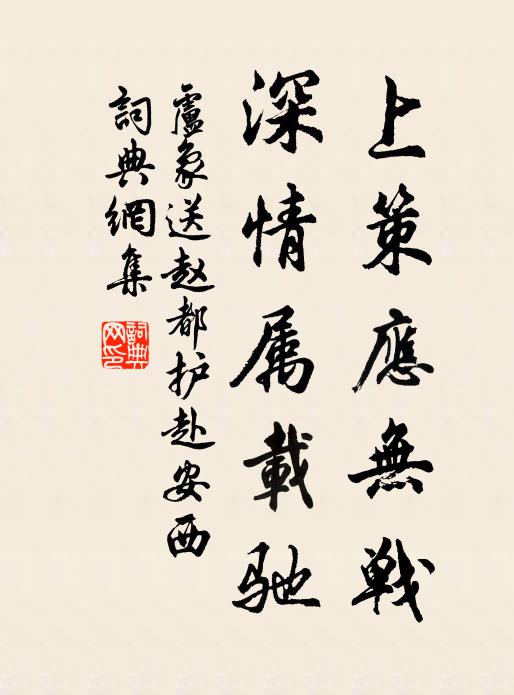 上策應無戦
深情属載驰
盧象送赵都护赴安西
詞典網集
詞典網印